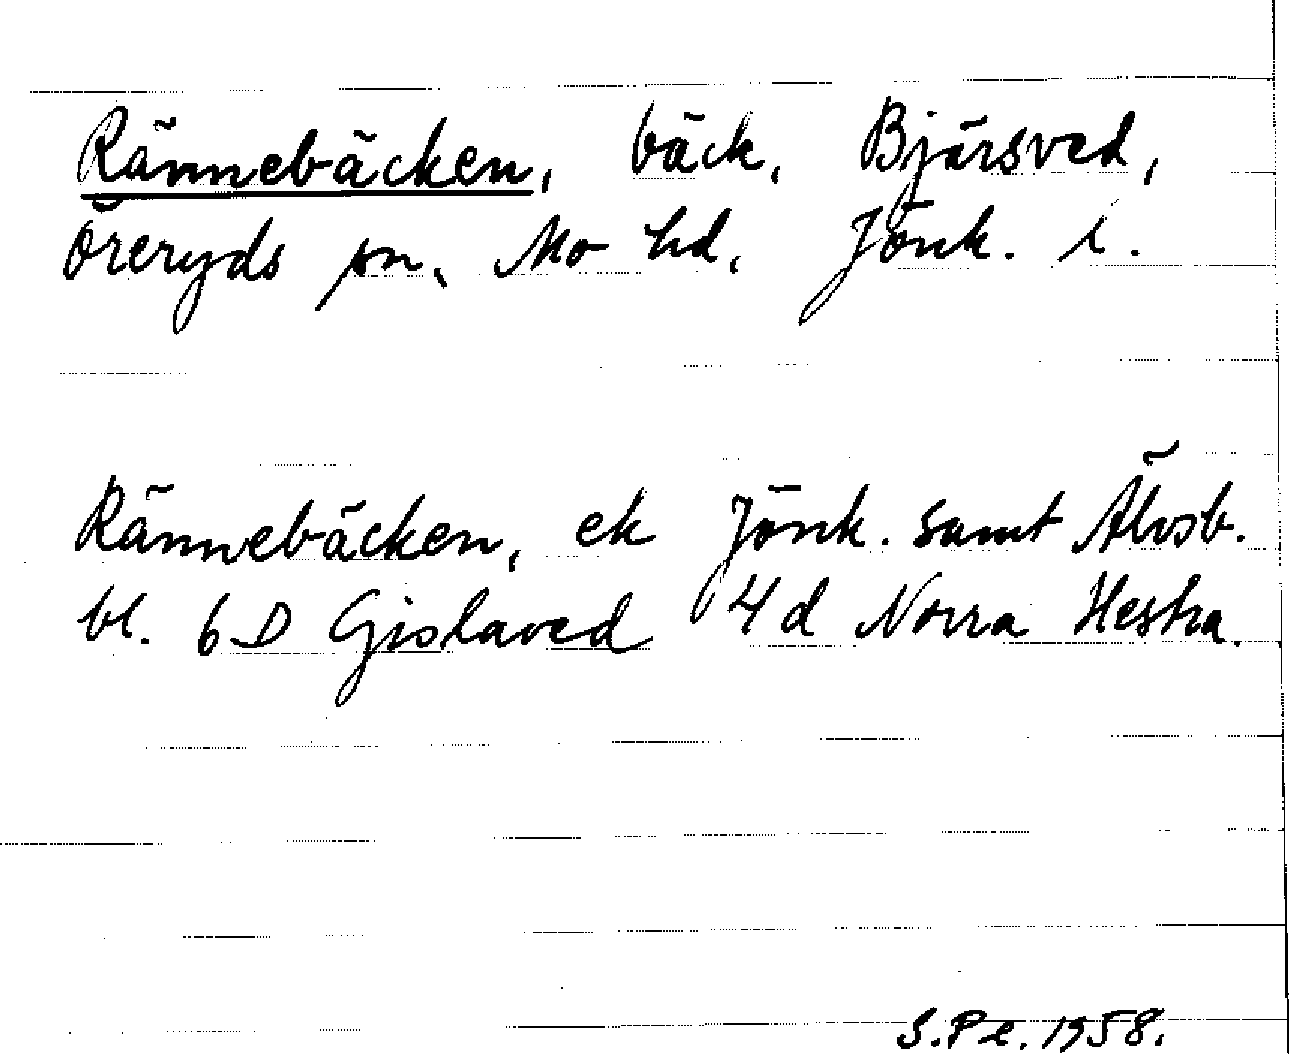 Rännebäcken, bäck, Bjärsved,
Öreryds sn, Mo hd, Jönk. l.
Rännebäcken, ek Jönk. samt Älvsb.
bl. 6D Gislaved 4d Norra Hestra.
S.Pe. 1958.